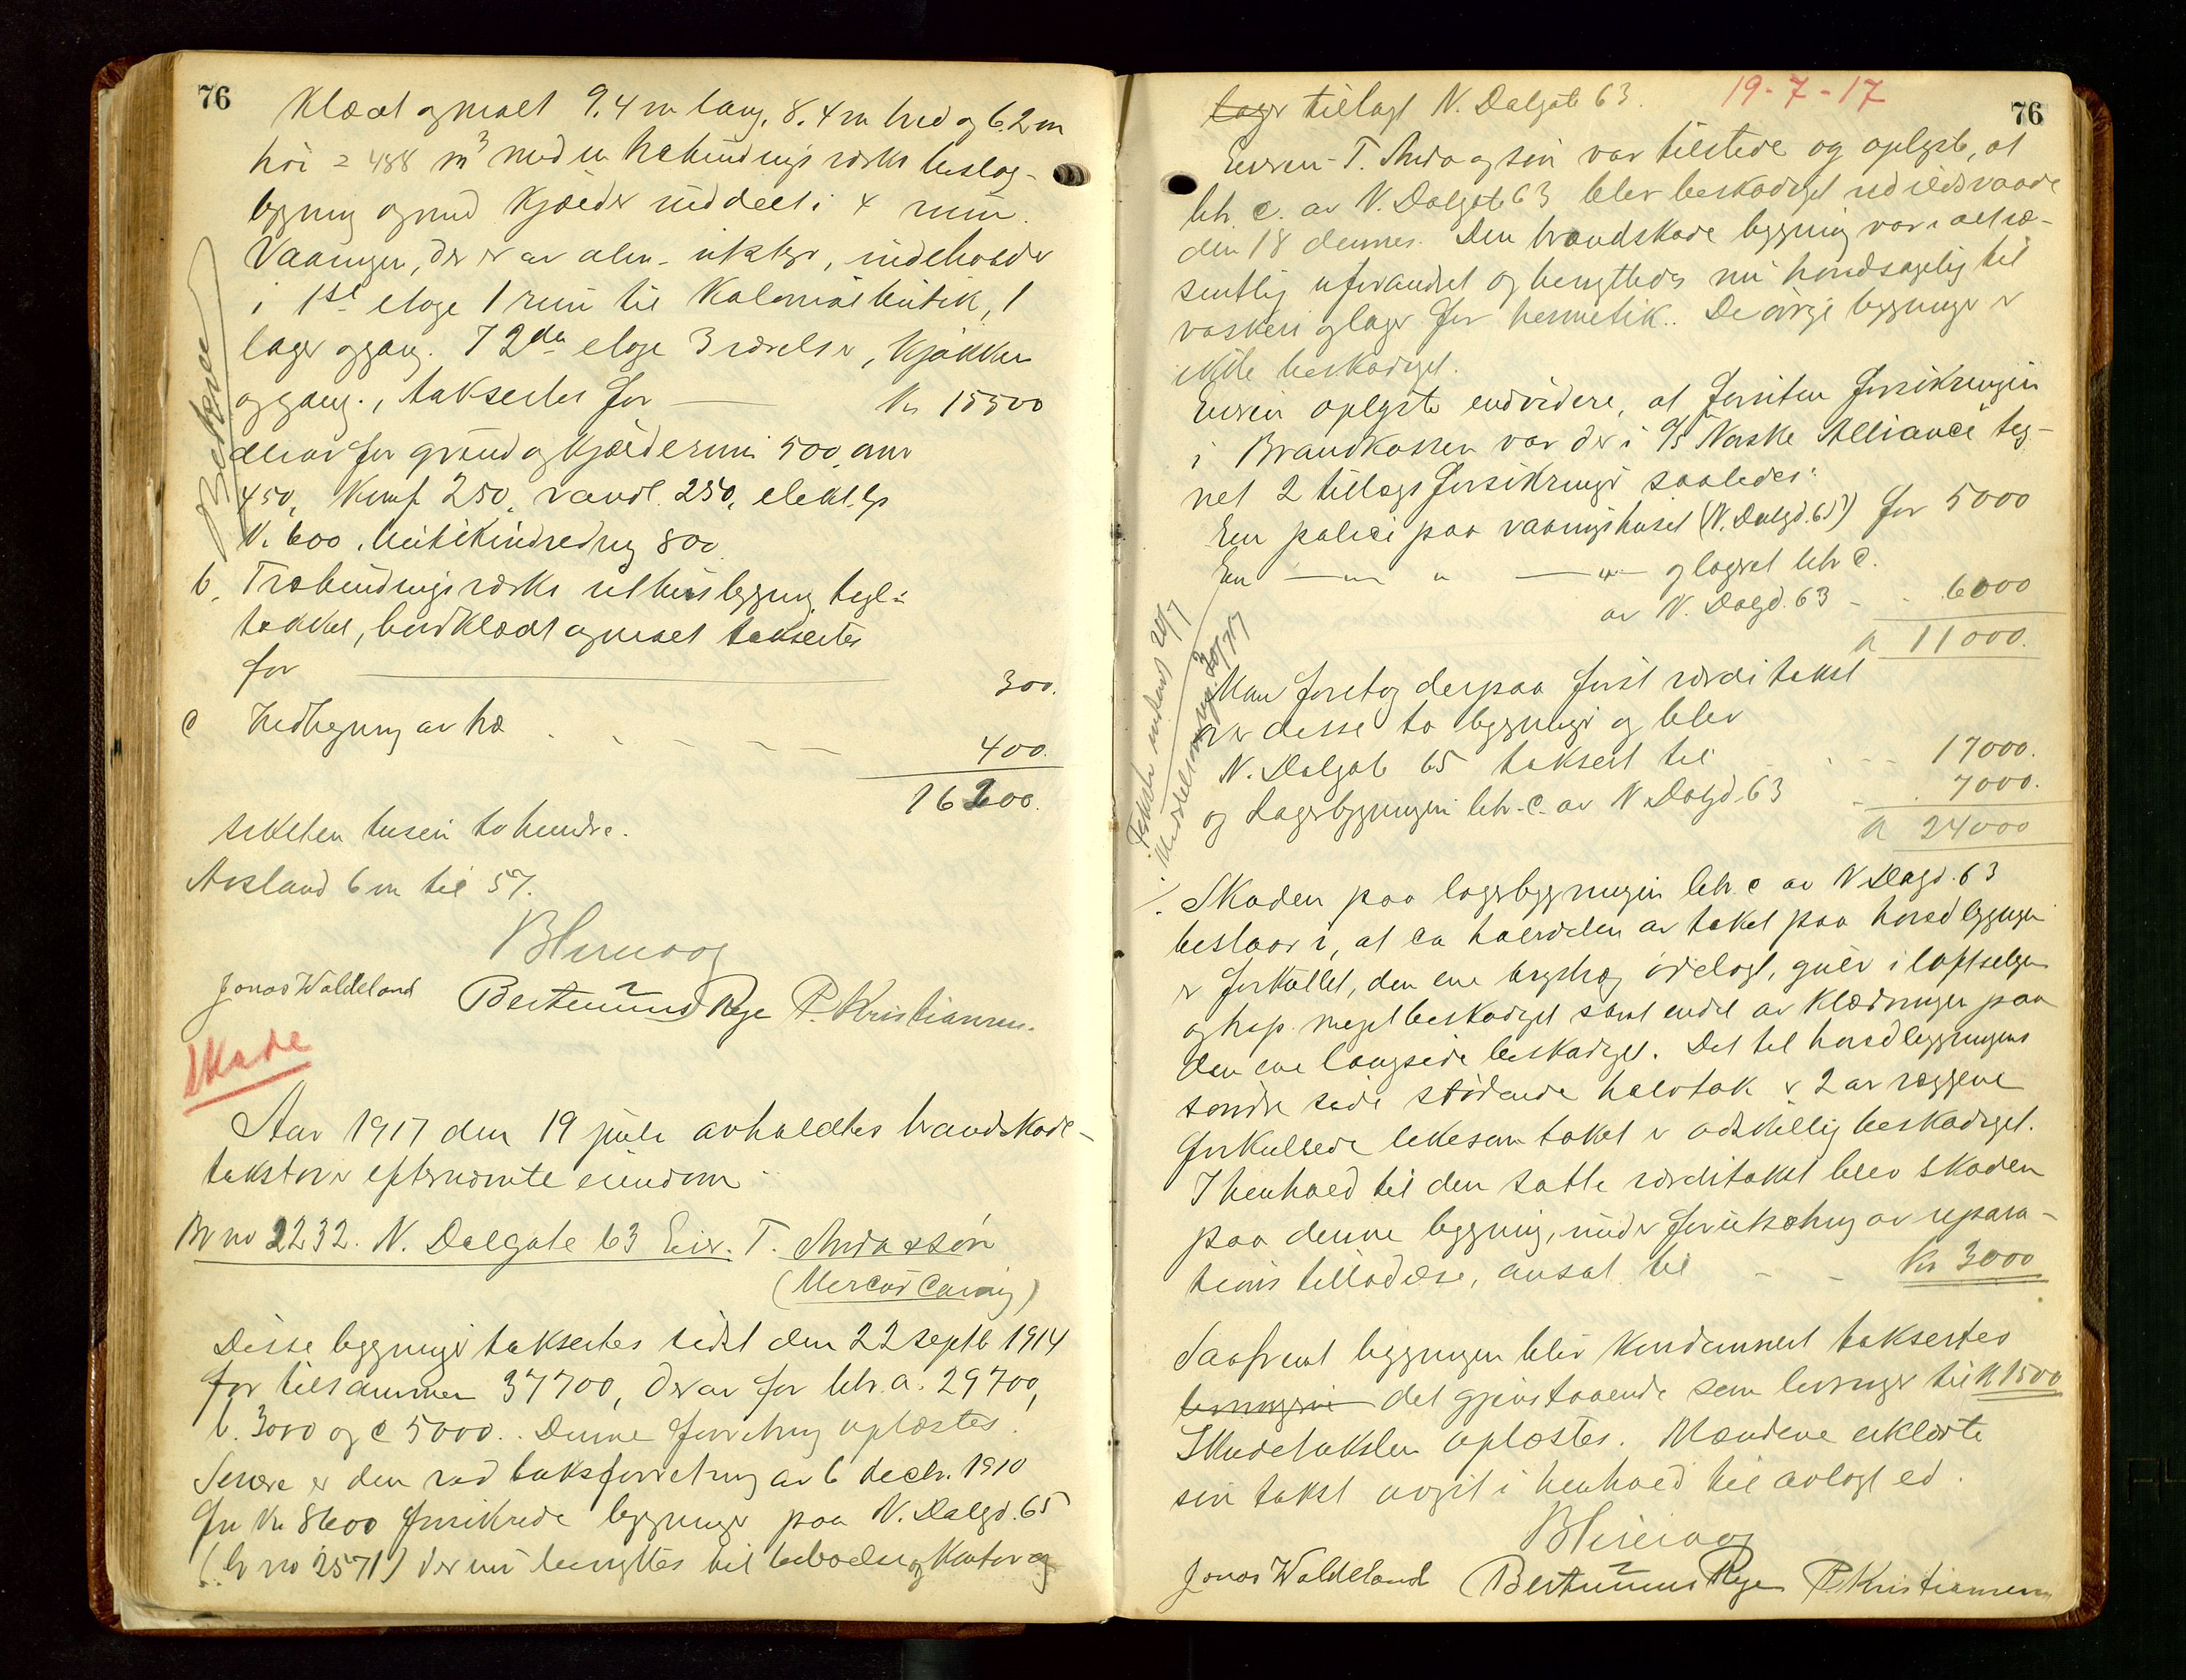 76
Klædt og malt 9.4 m lang, 8.4 m bred og 6.2 m
höi = 488 m³ med en trebindingsværks beslag-
bygning og med kjælder inddelt i 4 rum.
Vaaningen, der er av alm. utstyr, indeholder
i 1ste etage 1 rum til Kolonialbutik, 1
lager og gang. I 2den etage 3 værelser, kjøkken
og gang., taksertes for — Kr 15500
derav for grund og kjælderrum 500, mur
450, Komf. 250, vandl. 250, elekt. lys
Kr. 600, butikindredning 800
b. Trebindingsværks uthusbygning, tegl-
takket, bordklædt og malt taksertes
for — 300.
c Indhegning av træ - - - - 400.
16200.
seksten tusen to hundre.
Avstand 6 m til 57.
Jonas Waldeland Bertinius Rege P. Kristiansen.
Skade
Aar 1917 den 19 juli avholdtes brandskade-
takst over efternævnte eiendom:
Br no 2232. N. Dalgate 63 Eier. T. Anda & søn
(Mercur Caning)
Disse bygninger taksertes sidst den 22 septb 1914
for tilsammen 37700, derav for litr. a. 29700,
b. 3000 og c 5000. Denne forretning oplæstes.
Senere er den ved taksforretning av 6 decbr. 1910
for Kr 8600 forsikrede bygninger paa N. Dalgd. 65
(br no 2571) der nu benyttes til beboelse og Kontor og
76
19-7-17
lager tillagt N. Dalgate 63.
Eieren T. Anda og søn var tilstede og oplyste, at
litr. c. av N. Dalgate 63 blev beskadiget ved ildsvaade
den 18 dennes. Den brandskade bygning var i alt væ-
sentlig uforandret og benyttedes nu hovedsagelig til
vaskeri og lager for hermetik. De øvrige bygninger er
ikke beskadiget.
Eieren oplyste endvidere, at foruten forsikringen
i Brandkassen var der i A/S Norske Alliance teg-
net 2 tillægsforsikringer saaledes:
En police paa vaaningshuset (N. Dalgd. 65) for 5000
En — " — " — " — og lagret litr c.
av N. Dalgd. 63 - - 6000
Kr 11000.
Man foretog derpaa først værditakst
over disse to bygninger og blev
N. Dalgate 65 taksert til - - - 17000.
og Lagerbygningen litr. c. av N Dalgd. 63 - - 7000.
Kr 24000
Takst utskrevet 20/7
Skaden paa lagerbygningen litr. c av N Dalgd. 63
bestaar i, at ca halvdelen av taket paa hovedbygningen
er forkullet, den ene brystvæg ødelagt, gulv i loftsetagen
og trap. meget beskadiget samt endel av klædningen paa
den ene langside beskadiget. Det til hovedbygningens
søndre side stødende halvtak er 2 av væggene
forkullede likesom taket er adskillig beskadiget.
I henhold til den satte værditakst blev skaden
paa denne bygning, under forutsætning av repara-
tions tilladelse, ansat til - - Kr 3000
Saafremt bygningen blir kondemnert taksertes
det gjenstaaende som levninger til Kr 1500
Skadetaksten oplæstes. Mændene erklærte
sin takst avgit i henhold til avlagt ed.
Jonas Waldeland Bertinius Rege P. Kristiansen